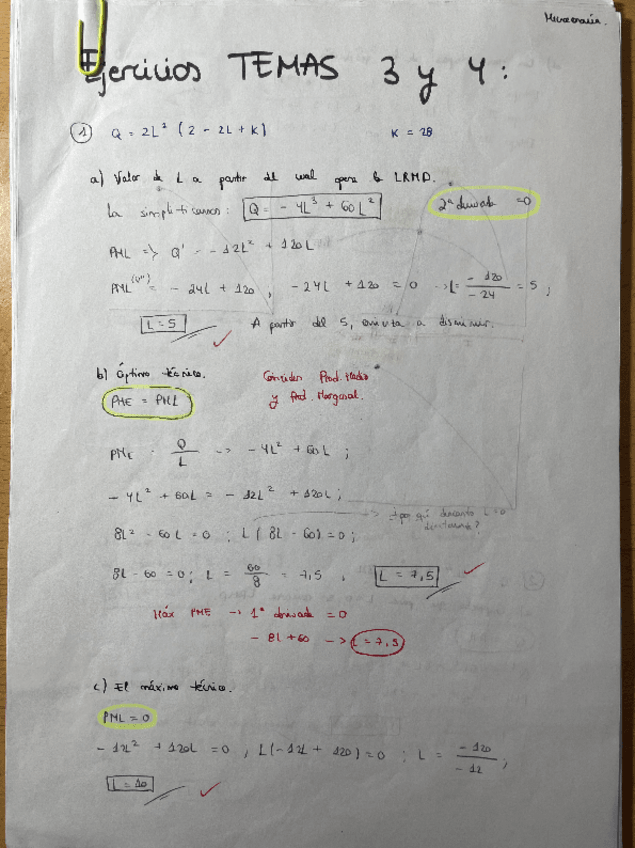 Microeconomía.
Ejercicios TEMAS 3 y 4:
① Q = 2L² (2 - 2L + K) K = 28
a) Valor de L a partir del cual opera la LRMD.
La simplificamos: Q = - 4L³ + 60L² 2ª derivada = 0
PML => Q' = - 12L² + 120L
PML (Q'') = - 24L + 120 , - 24L + 120 = 0 -> L = - 120 / - 24 = 5 ;
L = 5 A partir del 5, empieza a disminuir.
b) Óptimo técnico. Coinciden Prod. Medio
PME = PML y Prod. Marginal.
PME = Q / L -> - 4L² + 60L ;
- 4L² + 60L = - 12L² + 120L ;
¿por qué descarto L = 0
directamente?
8L² - 60L = 0 ; L ( 8L - 60) = 0 ;
8L - 60 = 0 ; L = 60 / 8 = 7,5 , L = 7,5
Máx PME -> 1ª derivada = 0
- 8L + 60 -> L = 7,5
c) El máximo técnico.
PML = 0
- 12L² + 120L = 0 , L(- 12L + 120) = 0 ; L = - 120 / - 12 ;
L = 10